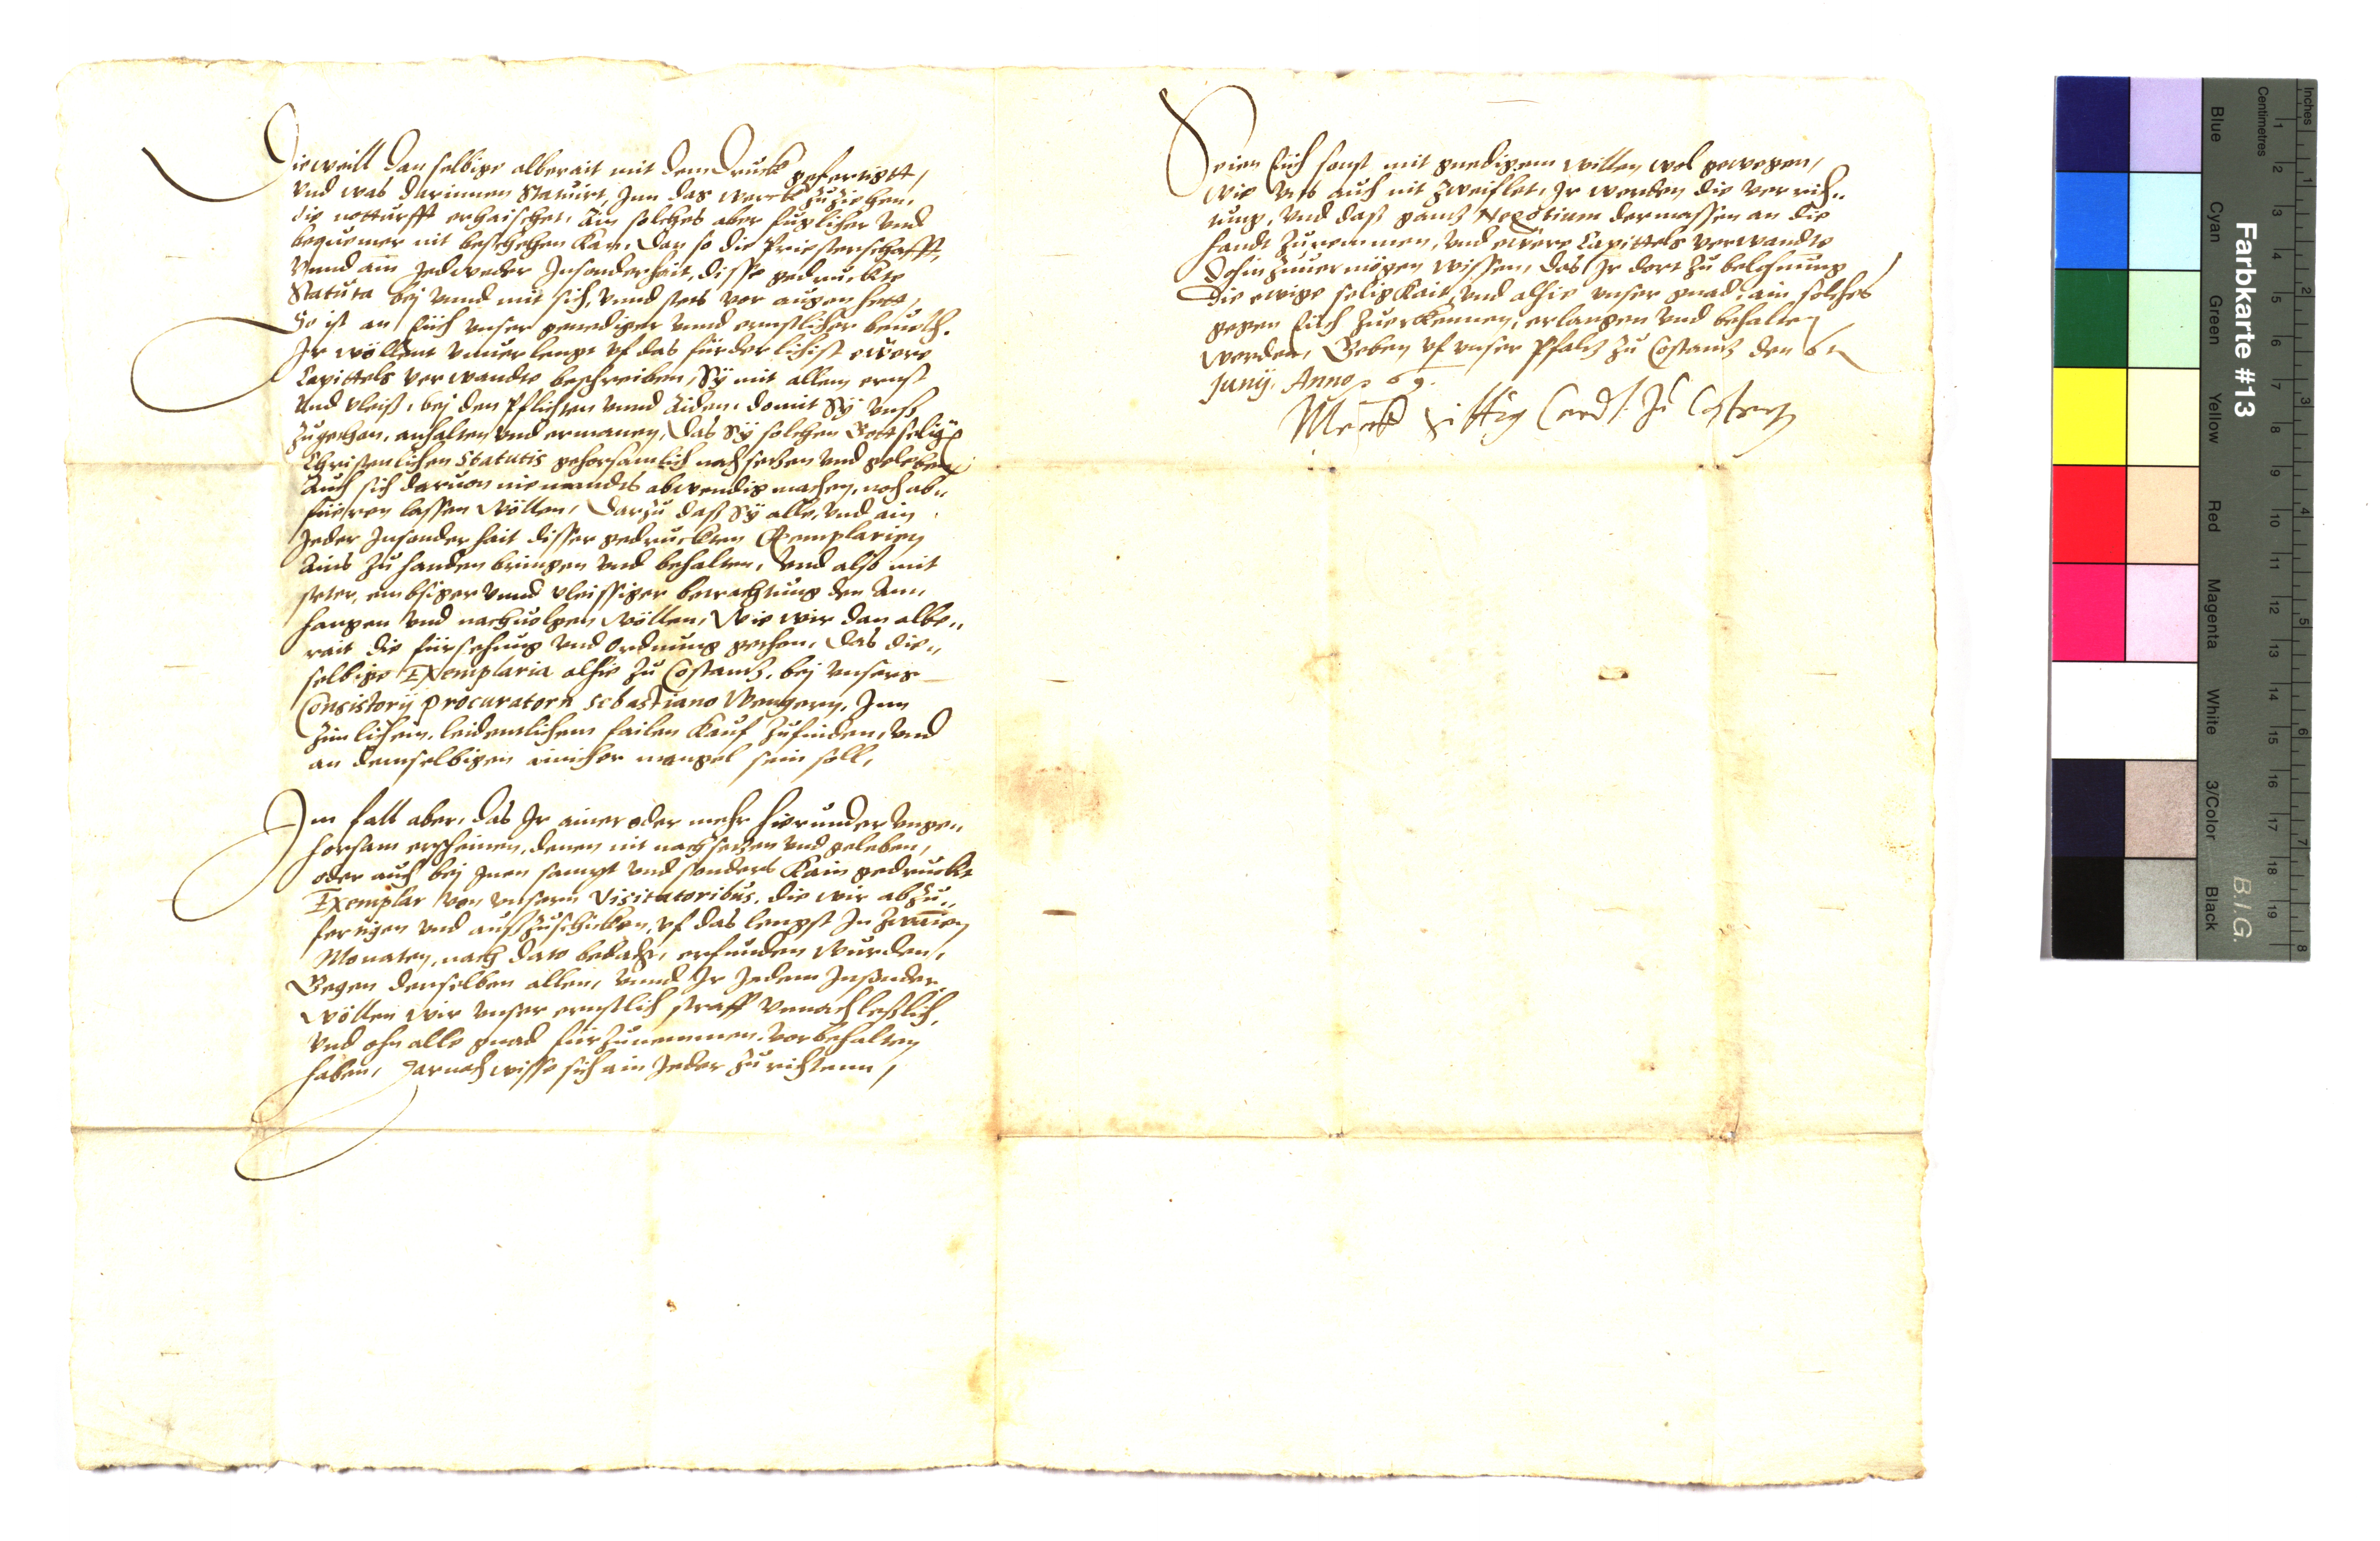 Dieweill dan selbige alberait mit dem Druckh gefertigtt,
Vnd was darinnen Statuirt, Inn das werckh zuziehen,
die notturfft erhaischet, Ain solches aber fuglicher vnd
bequemer nit beschehen kan, dan so die Priesterschafft,
Vnnd ain Jedweder Insonderhait, disse gedruckte
Statuta bej vnnd mit sich, vnnd stets vor augen hett,
So ist an Eüch vnser genediger vnnd ernstlicher beuelch.
Ir wöllent vnuerlengt vf das fürderlichist ewere
Capittels verwandte beschreiben, Sÿ mit allem ernst
Vnd vleiß, bej den Pflichten vnnd Aiden, domit Sÿ vnß
zugethan, anhalten vnd ermanen, das Sÿ solchen Gottselig
Christenlichen Statutis gehorsamlich nach setzen vnd geleben
Auch sich daruon niemandts abwendig machen, noch ab„
füeren lassen wöllen, Darzu daß Sÿ alle, vnd ain
Jeder Insonderhait disser gedruckten Exemplarien
Ains zu handen bringen vnd behalten, Vnd also mit
steter, embsiger vnnd vleissiger betrachtung den Ann„
hangen vnd nachuolgen wöllen, Wie wir dan albe„
rait die fürsehung vnd Ordnung gethen, das die„
selbige Exemplaria alhie zu Costantz, bej vnsers
Consistorij Procuratorn Sebastiano Wengern, Inn
zimlichem, leidenlichem failen Kauf zufinden, vnd
an demselbigen ainicher mangel sein soll,
Im fall aber, das Ir ainer oder mehr hierunder vnge„
horsam erscheinen, denen nit nachsetzen vnd geleben,
oder auch bej Inen sampt vnd sonders Kain gedruckt
Exemplar von vnsern Visitatoribus, die wir abzu„
fertigen vnd außzuschicken, vf das lengst In zwaien
Monaten, nach dato bedacht, erfunden wurden,
Gegen denselben allen, vnnd Ir Jedem Insonder
wöllen wir vnser ernstlich straff vnnachleßlich,
Vnd ohn alle gnad fürzunemmen, vorbehalten
haben, Darnach wisse sich ain Jeder zurichtenn,
Seien Eüch sonst mit gnedigem willen wol gewogen,
wie vns auch nit zweiflet, Ir werden die verrich„
tung, Vnd daß gantz Negotium dermassen an die
handt zunemmen, vnd ewere Capittels verwandte
Dohin zuuermögen wissen, das Ir dort zu belohnung
die ewige seligkait, vnd alhie vnser gnad, ain solches
gegen Eüch zuerkennen, erlangen vnd behalten
werden, Geben vf vnser Pfaltz zu Costantz den 6n
Junij. Anno 69.
Marck Sittig Card. zu Costantz
Farbkarte #13
B.I.G.
Inches
Centimetres
Blue Cyan Green Yellow Red Magenta White 3/Color Black
1 2 3 4 5 6 7 8 9 10 11 12 13 14 15 16 17 18 19
1 2 3 4 5 6 7 8